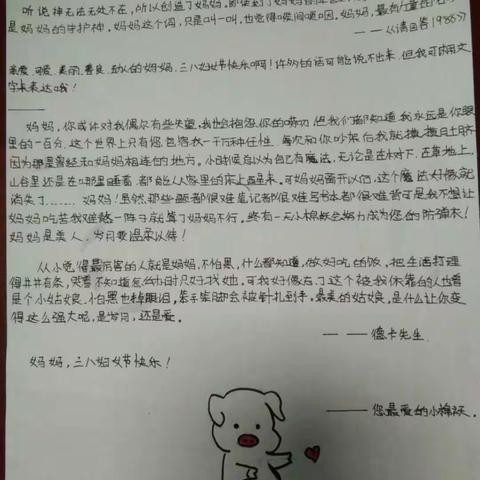 听说神无法无处不在,所以创造了妈妈,即使到了妈妈的
是妈妈的守护神。妈妈这个词,只是叫一叫,也觉得喉间哽咽,妈妈,最有力量的
——《请回答1988》
亲爱、可爱、美丽、善良、动人的妈妈,三八妇女节快乐啊!许多的话可能说不出来,但我可以用文
字来表达哦!
妈妈,你或许对我偶尔有些失望,我也会抱怨你的唠叨,但我们都知道,我永远是你眼
里的一百分,这个世界上只有您,包容我一千万种任性,每次和你吵架后我就摸摸肚脐
因为那是曾经和妈妈相连的地方,小时候总以为自己有魔法,无论是在树下、在草地上、
山谷里还是在哪里睡着,都能从家里的床上醒来。可妈妈离开以后,这个魔法好像就
消失了……妈妈!虽然那些题都很难,笔记都很难写,书本都很难背,可是我不想让
妈妈吃苦,我难熬一阵子就算了,妈妈不行。终有一天小棉袄会努力成为您的防弹衣!
妈妈是美人,岁月要温柔以待!
从小觉得最厉害的人就是妈妈,不怕黑,什么都知道,做好吃的饭,把生活打理
得井井有条,哭着不知道怎么办时只好找她。可我好像忘了这个被我依靠的人也曾
是个小姑娘,怕黑也掉眼泪,笨手笨脚会被针扎到手。最美的姑娘,是什么让你变
得这么强大呢,是岁月,还是爱。
——德卡先生
妈妈,三八妇女节快乐!
——您最爱的小棉袄。